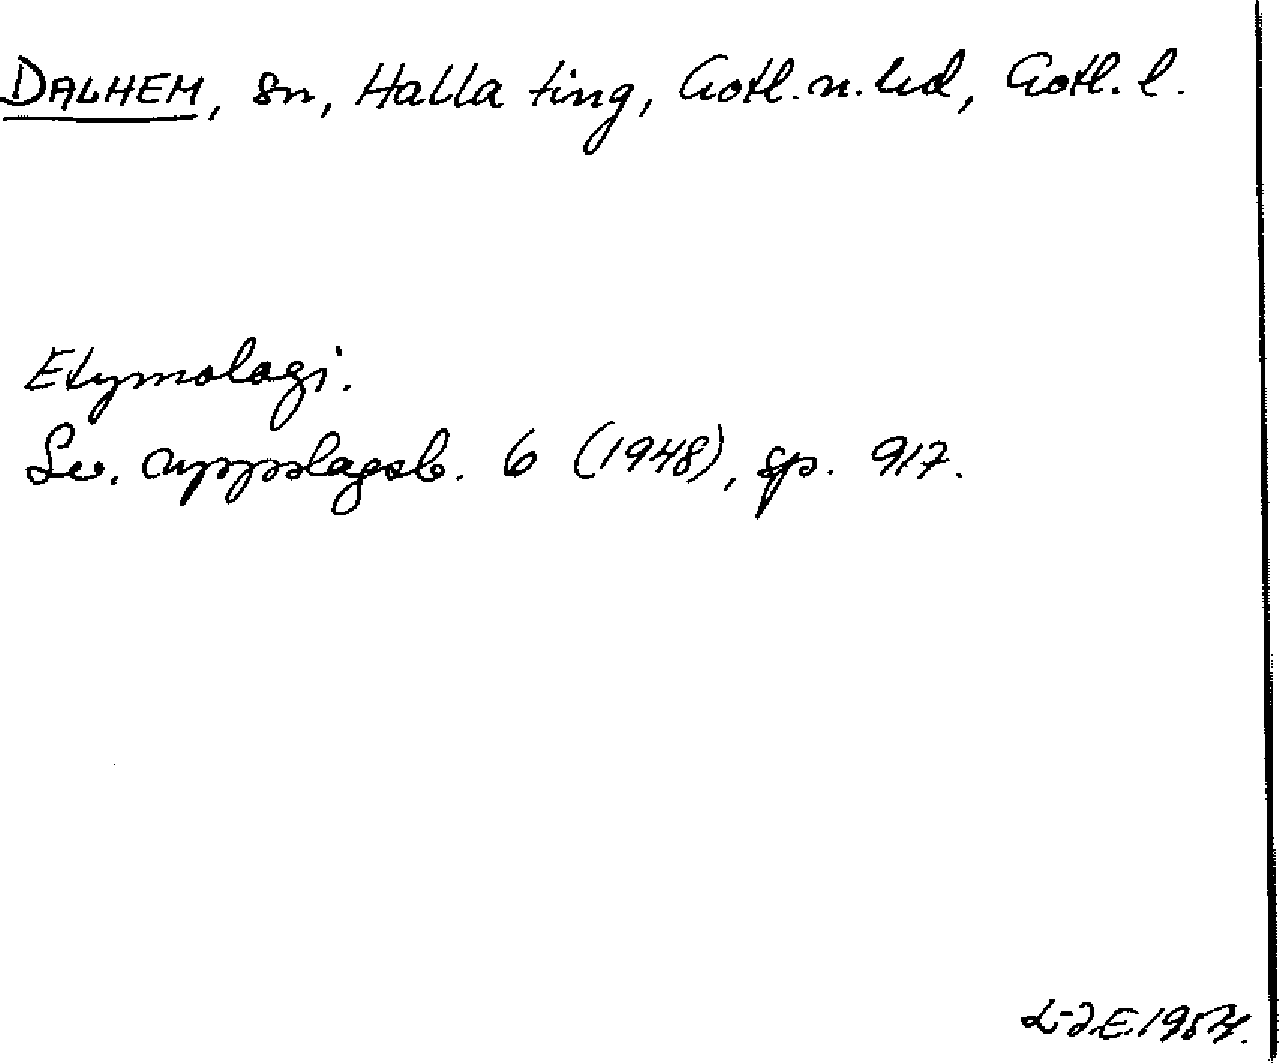 DALHEM, sn, Halla ting, Gotl. n. hd, Gotl. l.
Etymologi.
Sv. uppslagsb. 6 (1948), sp. 917.
L-J E. 1954.